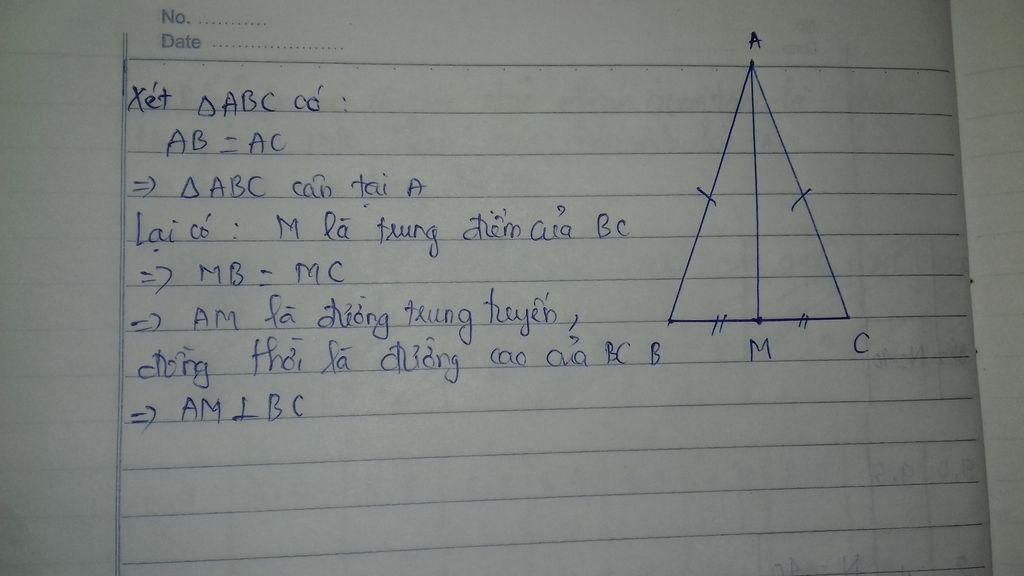 No. ............
Date ......................
Xét ΔABC có :
AB = AC
=> Δ ABC cân tại A
Lại có : M là trung điểm của BC
=> MB = MC
=> AM là đường trung tuyến,
đồng thời là đường cao của BC
=> AM ⊥ BC
A
B
M
C